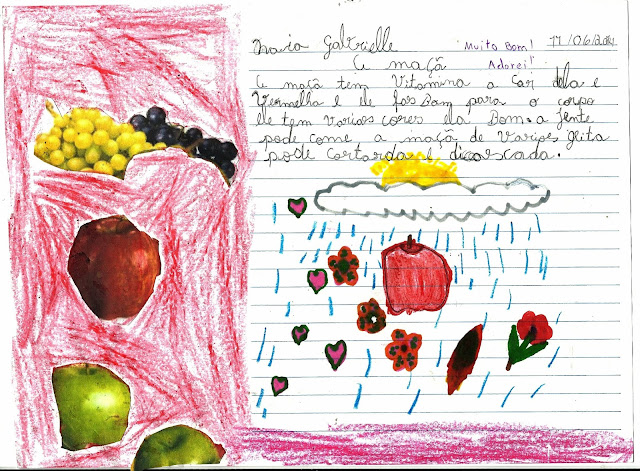 Maria Gabrielle Muito Bom! 11/06/2014
A maçã Adorei!
A maçã tem Vitamina a Cor dela e
Vermelha e ele fas Bam para o corpo
ele tem varios cores ela Bom. a jente
pode come a maçã de varios jeita
pode cortarda e dicascada.